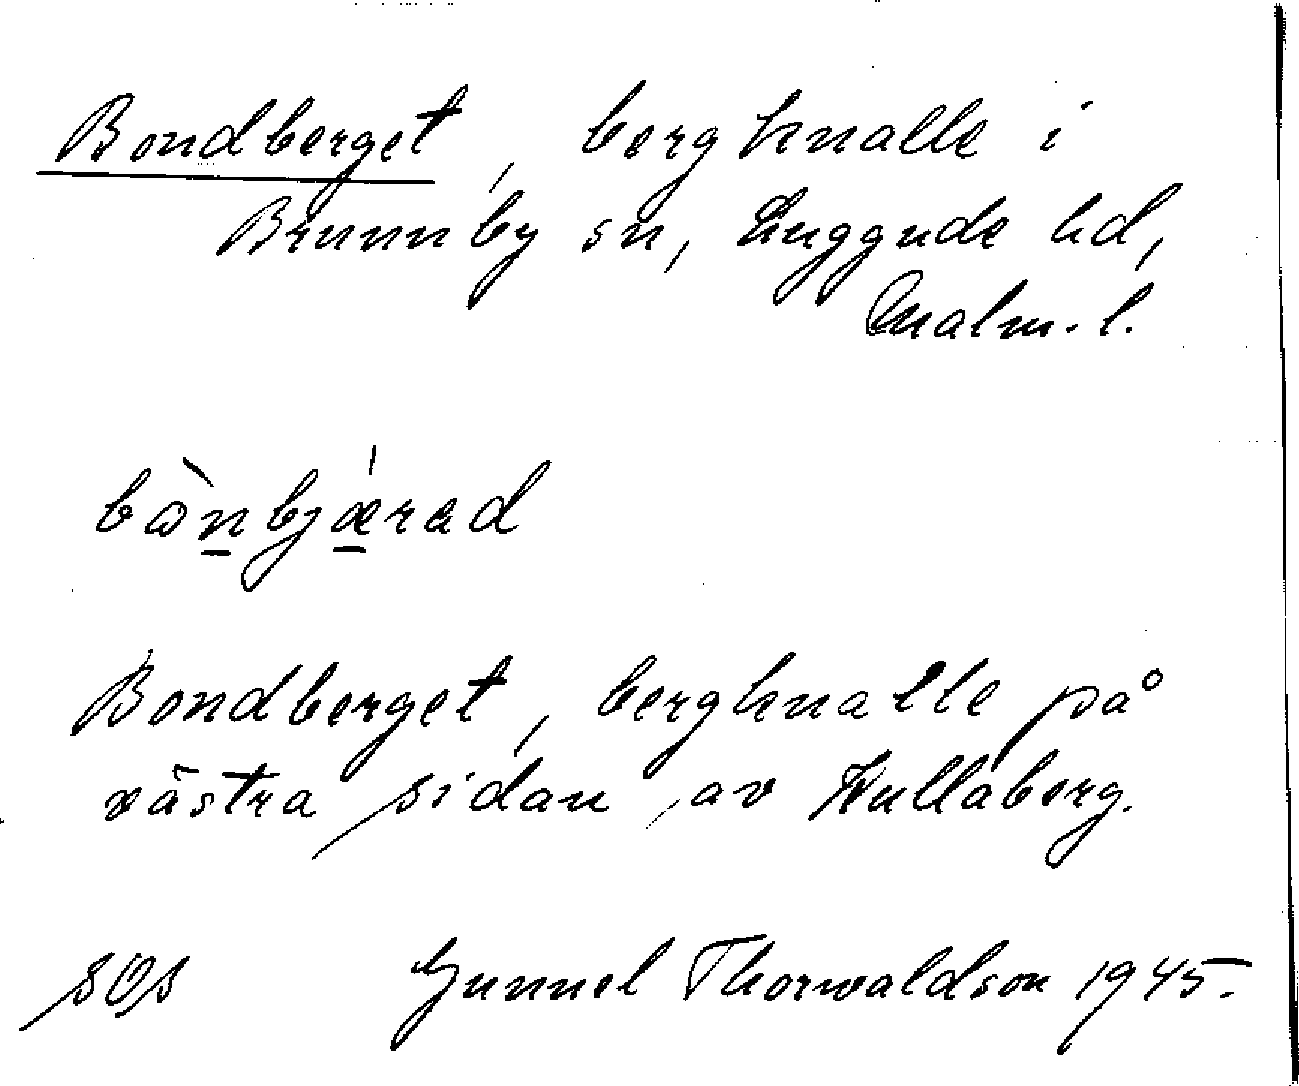 Bondberget, bergknalle i
Brunnby sn, Luggude hd,
Malm. l.
bòn̲bjæ̲̍rad
Bondberget, bergknalle på
västra sidan av Kullaberg.
SOS Gunnel Thorwaldson 1945.